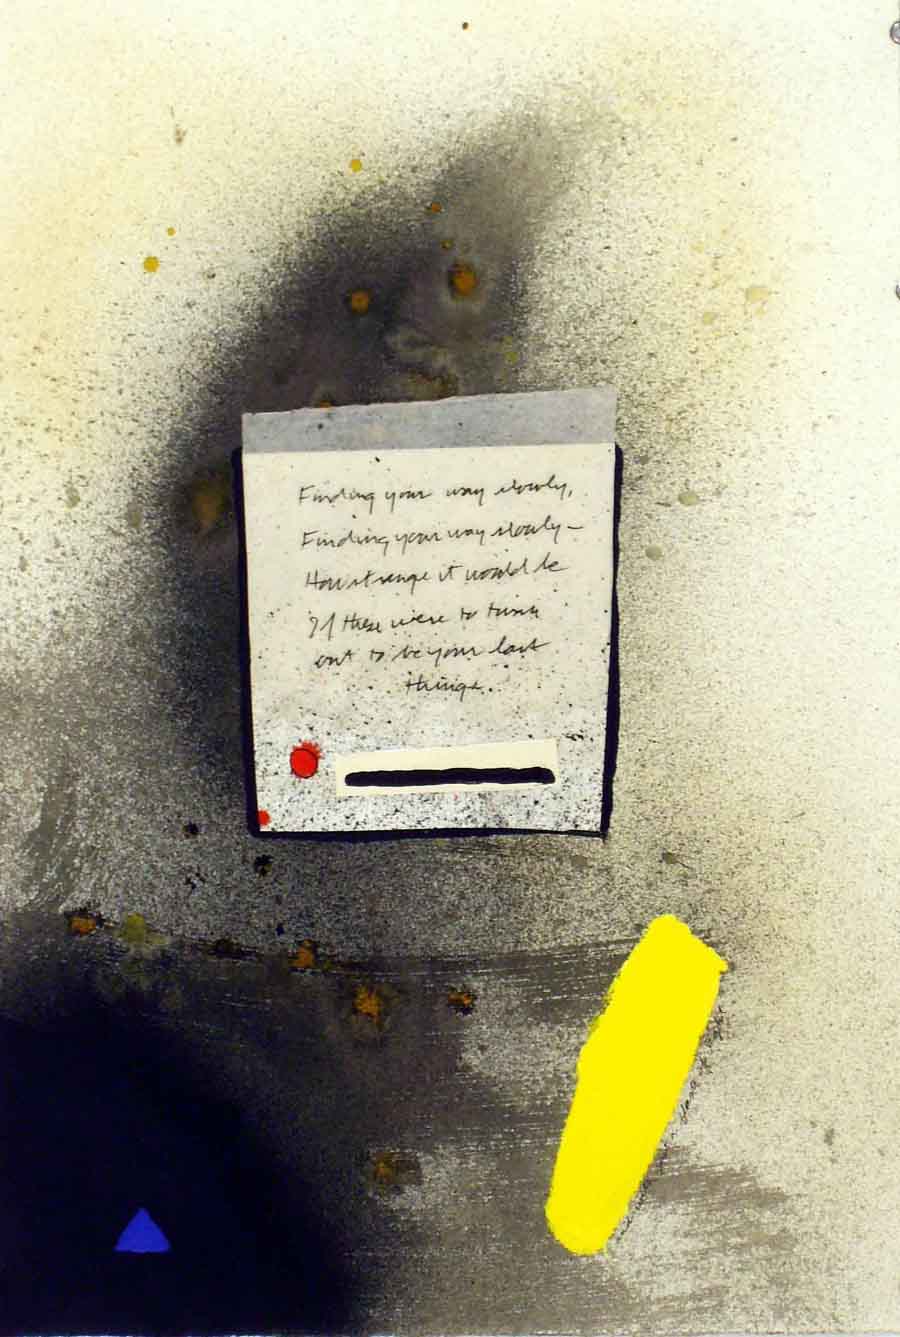 Finding your way slowly,
Finding your way slowly—
How strange it would be
If these were to turn
out to be your last
things.